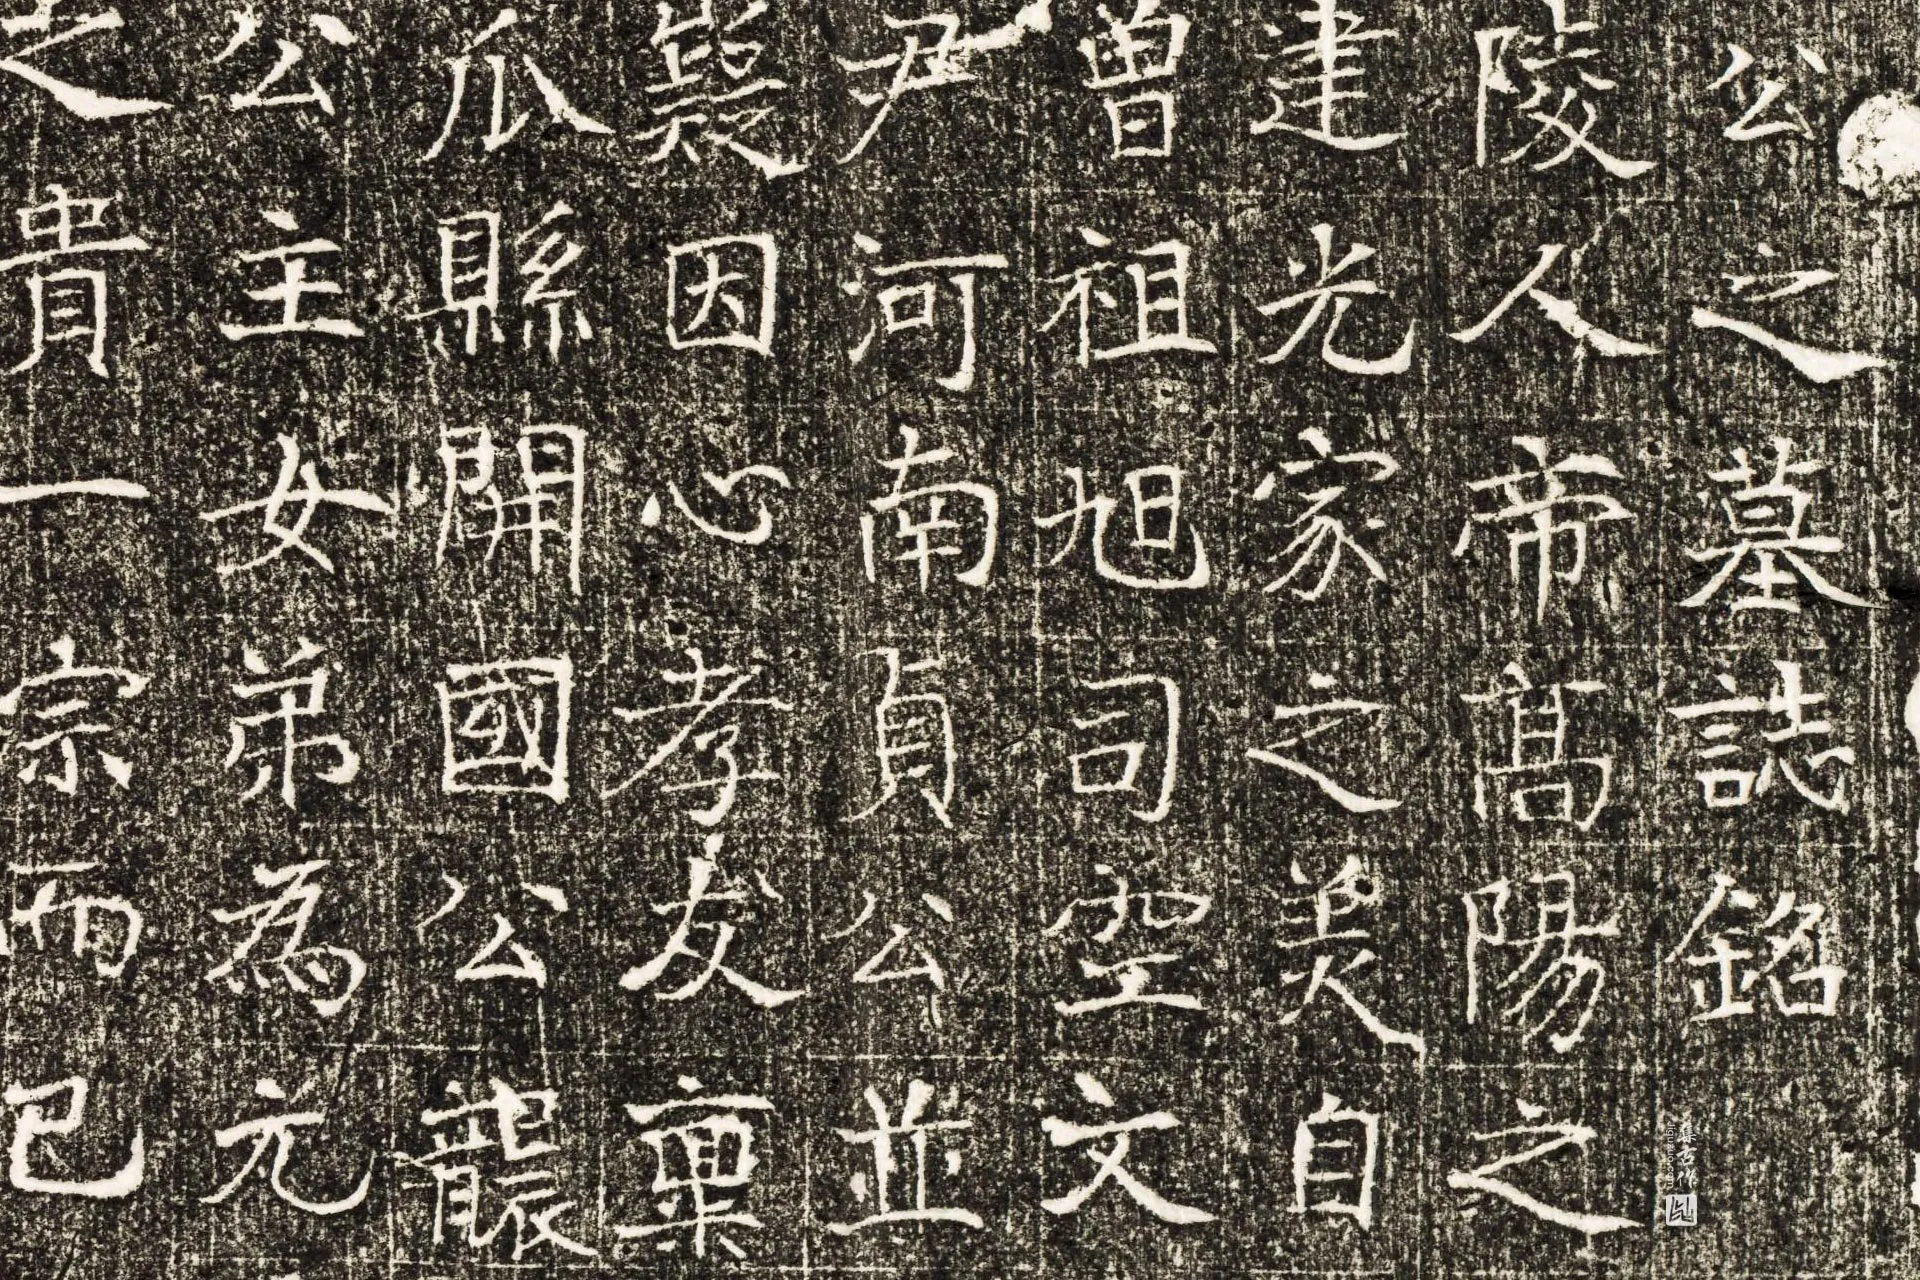 公之墓誌銘
陵人帝高陽之
建光家之美自
曾祖旭司空文
尹河南貞公並
嶷因心孝友稟
瓜縣開國公襲
公主女弟為元
之貴一宗而已